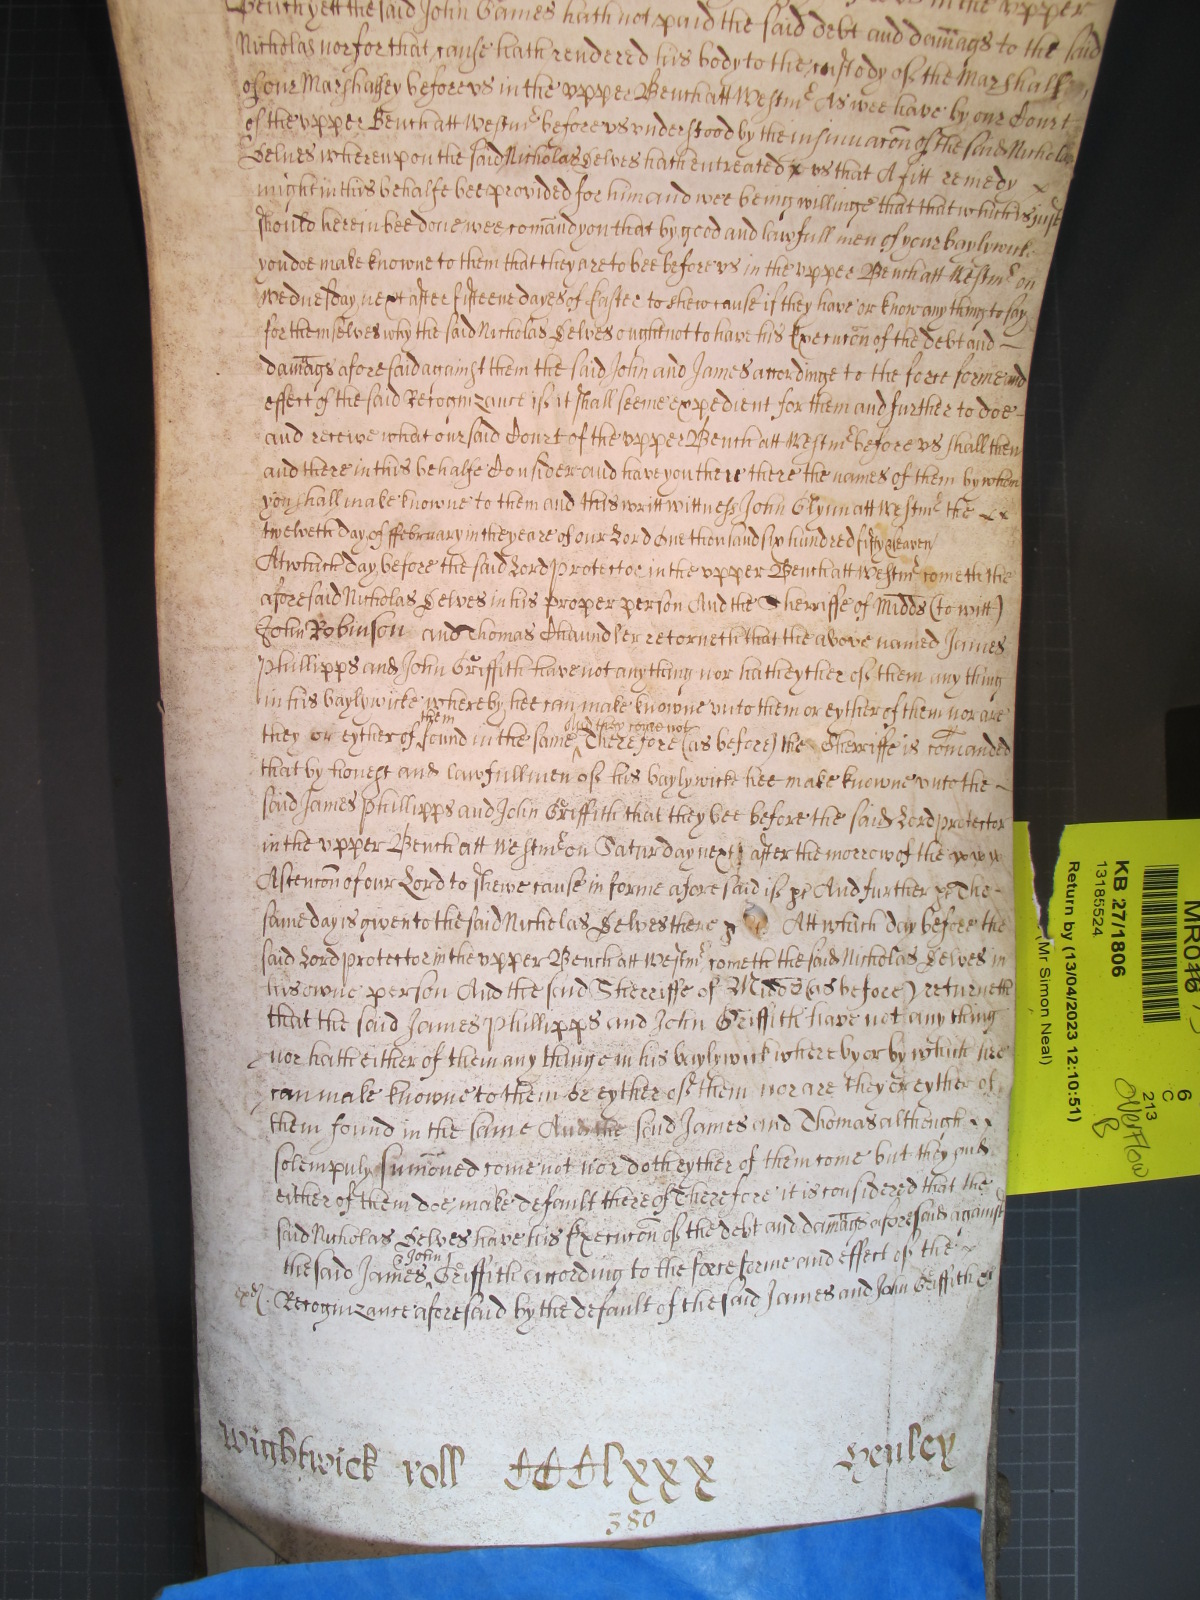 Bench yett the said John James hath not paid the said debt and dam̄ags to the said
Nicholas nor for that cause hath rendered his body to the custody of the Marshall
of our Marshalsey before us in the upper Bench att Westmr As wee have by our Court
of the upper Bench att Westmr before us understood by the insinuacōn of the said Nicholas
Selves whereupon the said Nicholas Selves hath entreated us that A fitt remedy
might in this behalfe bee provided for him and wee being willinge that that which is just
should herein bee done wee com̄and you that by good and lawfull men of your baylywick
you doe make knowne to them that they are to bee before us in the upper Bench att Westmr on
Wednesday next after fifteene dayes of Easter to shew cause if they have or know any thing to say
for themselves why the said Nicholas Selves ought not to have his Execucōn of the debt and
dam̄ags aforesaid against them the said John and James accordinge to the force forme and
effect of the said Recognizance if it shall seeme expedient for them and further to doe
and receive what our said Court of the upper Bench att Westmr before us shall then
and there in this behalfe Consider and have you there there the names of them by whom
you shall make knowne to them and this writt wittness John Glynn att Westmr the
twelveth day of ffebruary in the yeare of our Lord One thousand six hundred fifty seaven
At which day before the said Lord protector in the upper Bench att Westmr cometh the
aforesaid Nicholas Selves in his proper person And the Sherriffe of Midds (to witt)
John Robinson and Thomas Chaundler retorneth that the above named James
Phillipps and John Griffith have not any thing nor hath eyther of them any thing
in his baylywicke whereby hee can make knowne unto them or eyther of them nor are
they or eyther of them found in the same And they come not Therefore (as before) the Sherriffe is com̄anded
that by honest and lawfull men of his baylywick hee make knowne unto the
said James Phillipps and John Griffith that they bee before the said Lord protector
in the upper Bench att Westmr on Saturday next after the morrow of the
Ascencōn of our Lord to shewe cause in forme aforesaid if &c And further &c The
same day is given to the said Nicholas Selves there &c Att which day before the
said Lord protector in the upper Bench att Westmr cometh the said Nicholas Selves in
his owne person And the said Sherriffe of Midds (as before) returneth
that the said James Phillipps and John Griffith have not any thing
nor hath either of them any thinge in his baylywick where by or by which hee
can make knowne to them or eyther of them nor are they or eyther of
them found in the same And the said James and Thomas although
solempnly sum̄oned come not nor doth eyther of them come but they and
either of them doe make default thereof Therefore it is considered that the
said Nicholas Selves have his Execucōn of the debt and dam̄ags aforesaid against
the said James & John Griffith according to the force forme and effect of the
Recognizance aforesaid by the default of the said James and John Griffith &c
Wightwick roll CCClxxx Henley
380
KB 27/1806
13185524
Return by (13/04/2023 12:10:51)
(Mr Simon Neal)
6
C
213
Overflow
B